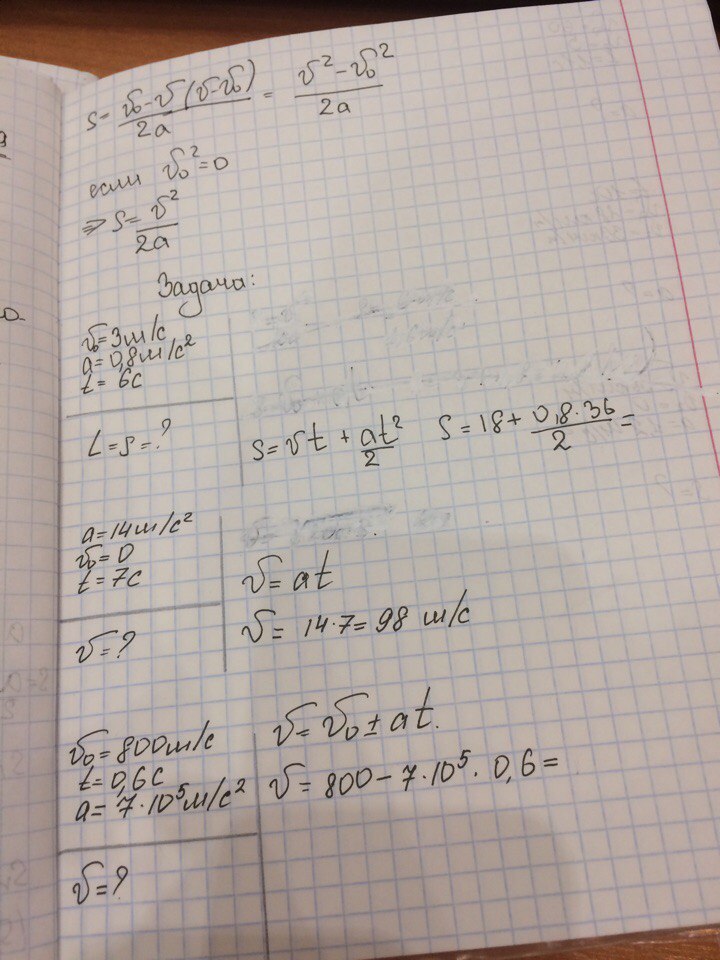 S = v₀-v (v-v₀) / 2a = v² - v₀² / 2a
если v₀² = 0
⇒ S = v² / 2a
Задача:
v₀ = 3м/с
a = 0,8м/с²
t = 6с
L = S = ?
S = vt + at²/2 S = 18 + 0,8·36/2 =
a = 14м/с²
v₀ = 0
t = 7с
v = ?
v = at
v = 14·7 = 98 м/с
v₀ = 800м/с
t = 0,6с
a = 7·10⁵м/с²
v = ?
v = v₀ ± at.
v = 800 - 7·10⁵·0,6 =